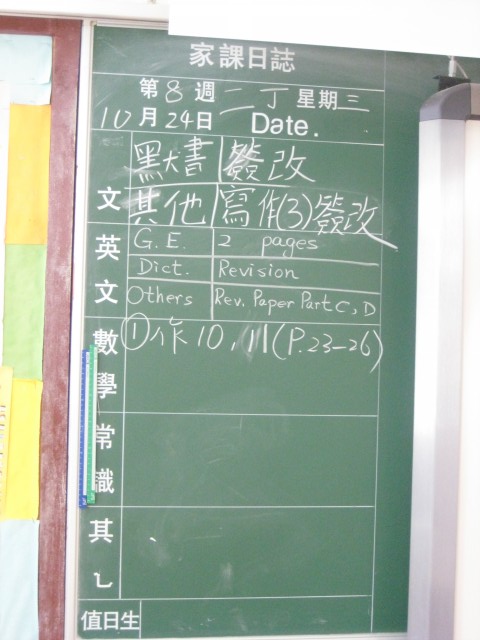 家課日誌
第8週 二丁 星期三
10月24日 Date.
文 默書 簽改
其他 寫作(3)簽改
英文 G.E. 2 pages
Dict. Revision
Others Rev. Paper Part C, D
數學 ①作10,11(P.23-26)
常識
其
值日生